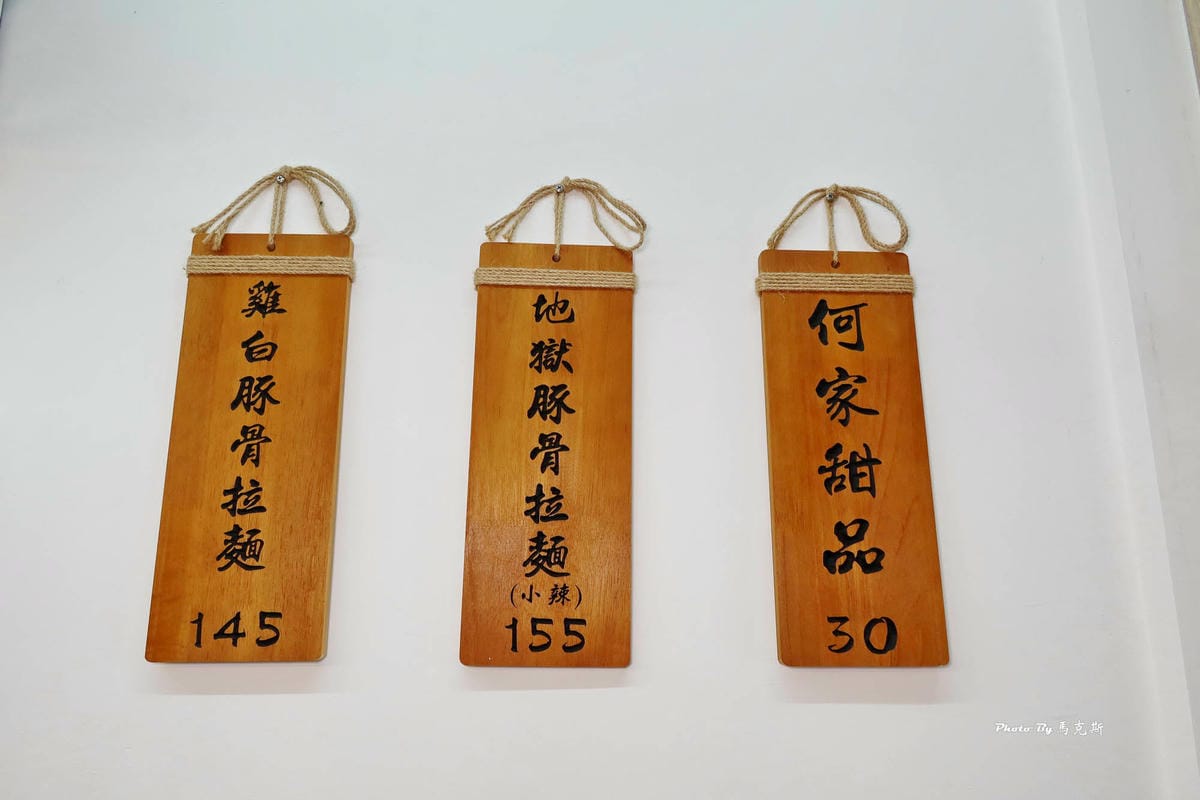 雞白豚骨拉麵
145
地獄豚骨拉麵
(小辣)
155
何家甜品
30
Photo By 馬克斯